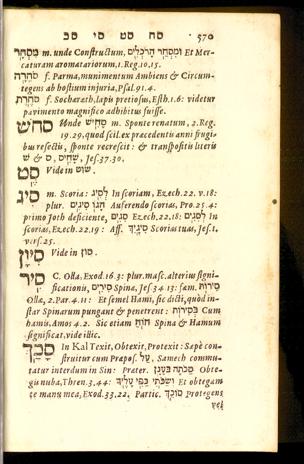 סח סט סי סכ 570
מִסְחָר m. unde Constructum, וּמִסְחַר הָרֹכְלִים Et Mer-
caturam aromatariorum, 1. Reg. 10.15.
סֹחֵרָה f. Parma, munimentum Ambiens & Circum-
tegens ab hostium injuria, Psal. 91.4.
סֹחֶרֶת f. Socharath, lapis pretiosus, Esth. 1.6: videtur
pavimento magnifico adhibitus fuisse.
סחש Unde סָחִישׁ m. Sponte renatum, 2. Reg.
19.29. quod scil. ex præcedentis anni frugi-
bus resectis, sponte recrescit: & transpositis literis
ס & שׁ, שָׁחִיס, Jes. 37.30.
סט Vide in שוט.
סיג m. Scoria: לְסִיג In scoriam, Ezech. 22. v. 18:
plur. הָגוֹ סִיגִים Auferendo scorias, Pro. 25.4:
primo Joth deficiente, סִגִים Ezech. 22.18: לְסִגִים In
scorias, Ezech. 22.19: Aff. סִיגָיִךְ Scorias tuas, Jes. 1.
v. 25.
סיון Vide in סון.
סיר C. Olla, Exod. 16.3: plur. masc. alterius signi-
ficationis, סִירִים Spina, Jes. 34.13: fœm. סִירוֹת
Olla, 2. Par. 4.11: Et semel Hami, sic dicti, quòd in-
star Spinarum pungant & penetrent: בְּסִירוֹת Cum
hamis, Amos 4.2. Sic etiam חוֹחַ Spina & Hamum
significat, vide illic.
סכך In Kal Texit, Obtexit, Protexit: Sæpè con-
struitur cum Præpos. עַל. Samech commu-
tatur interdum in Sin: Præter. סַכֹּתָה בֶעָנָן Obte-
gis nuba, Thren. 3.44: וְשַׂכֹּתִי כַפִּי עָלֶיךָ Et obtegam
te manu mea, Exod. 33.22. Partic. סוֹכֵךְ Protegens